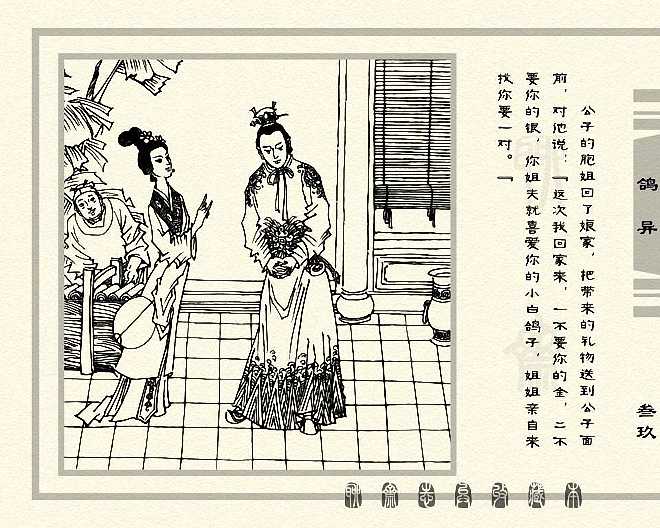 公子的胞姐回了娘家，把带来的礼物送到公子面
前，对他说：“这次我回家来，一不要你的金，二不
要你的银，你姐夫就喜爱你的小白鸽子，姐姐亲自来
找你要一对。”
鸽异
叁玖
聊斋志异收藏本